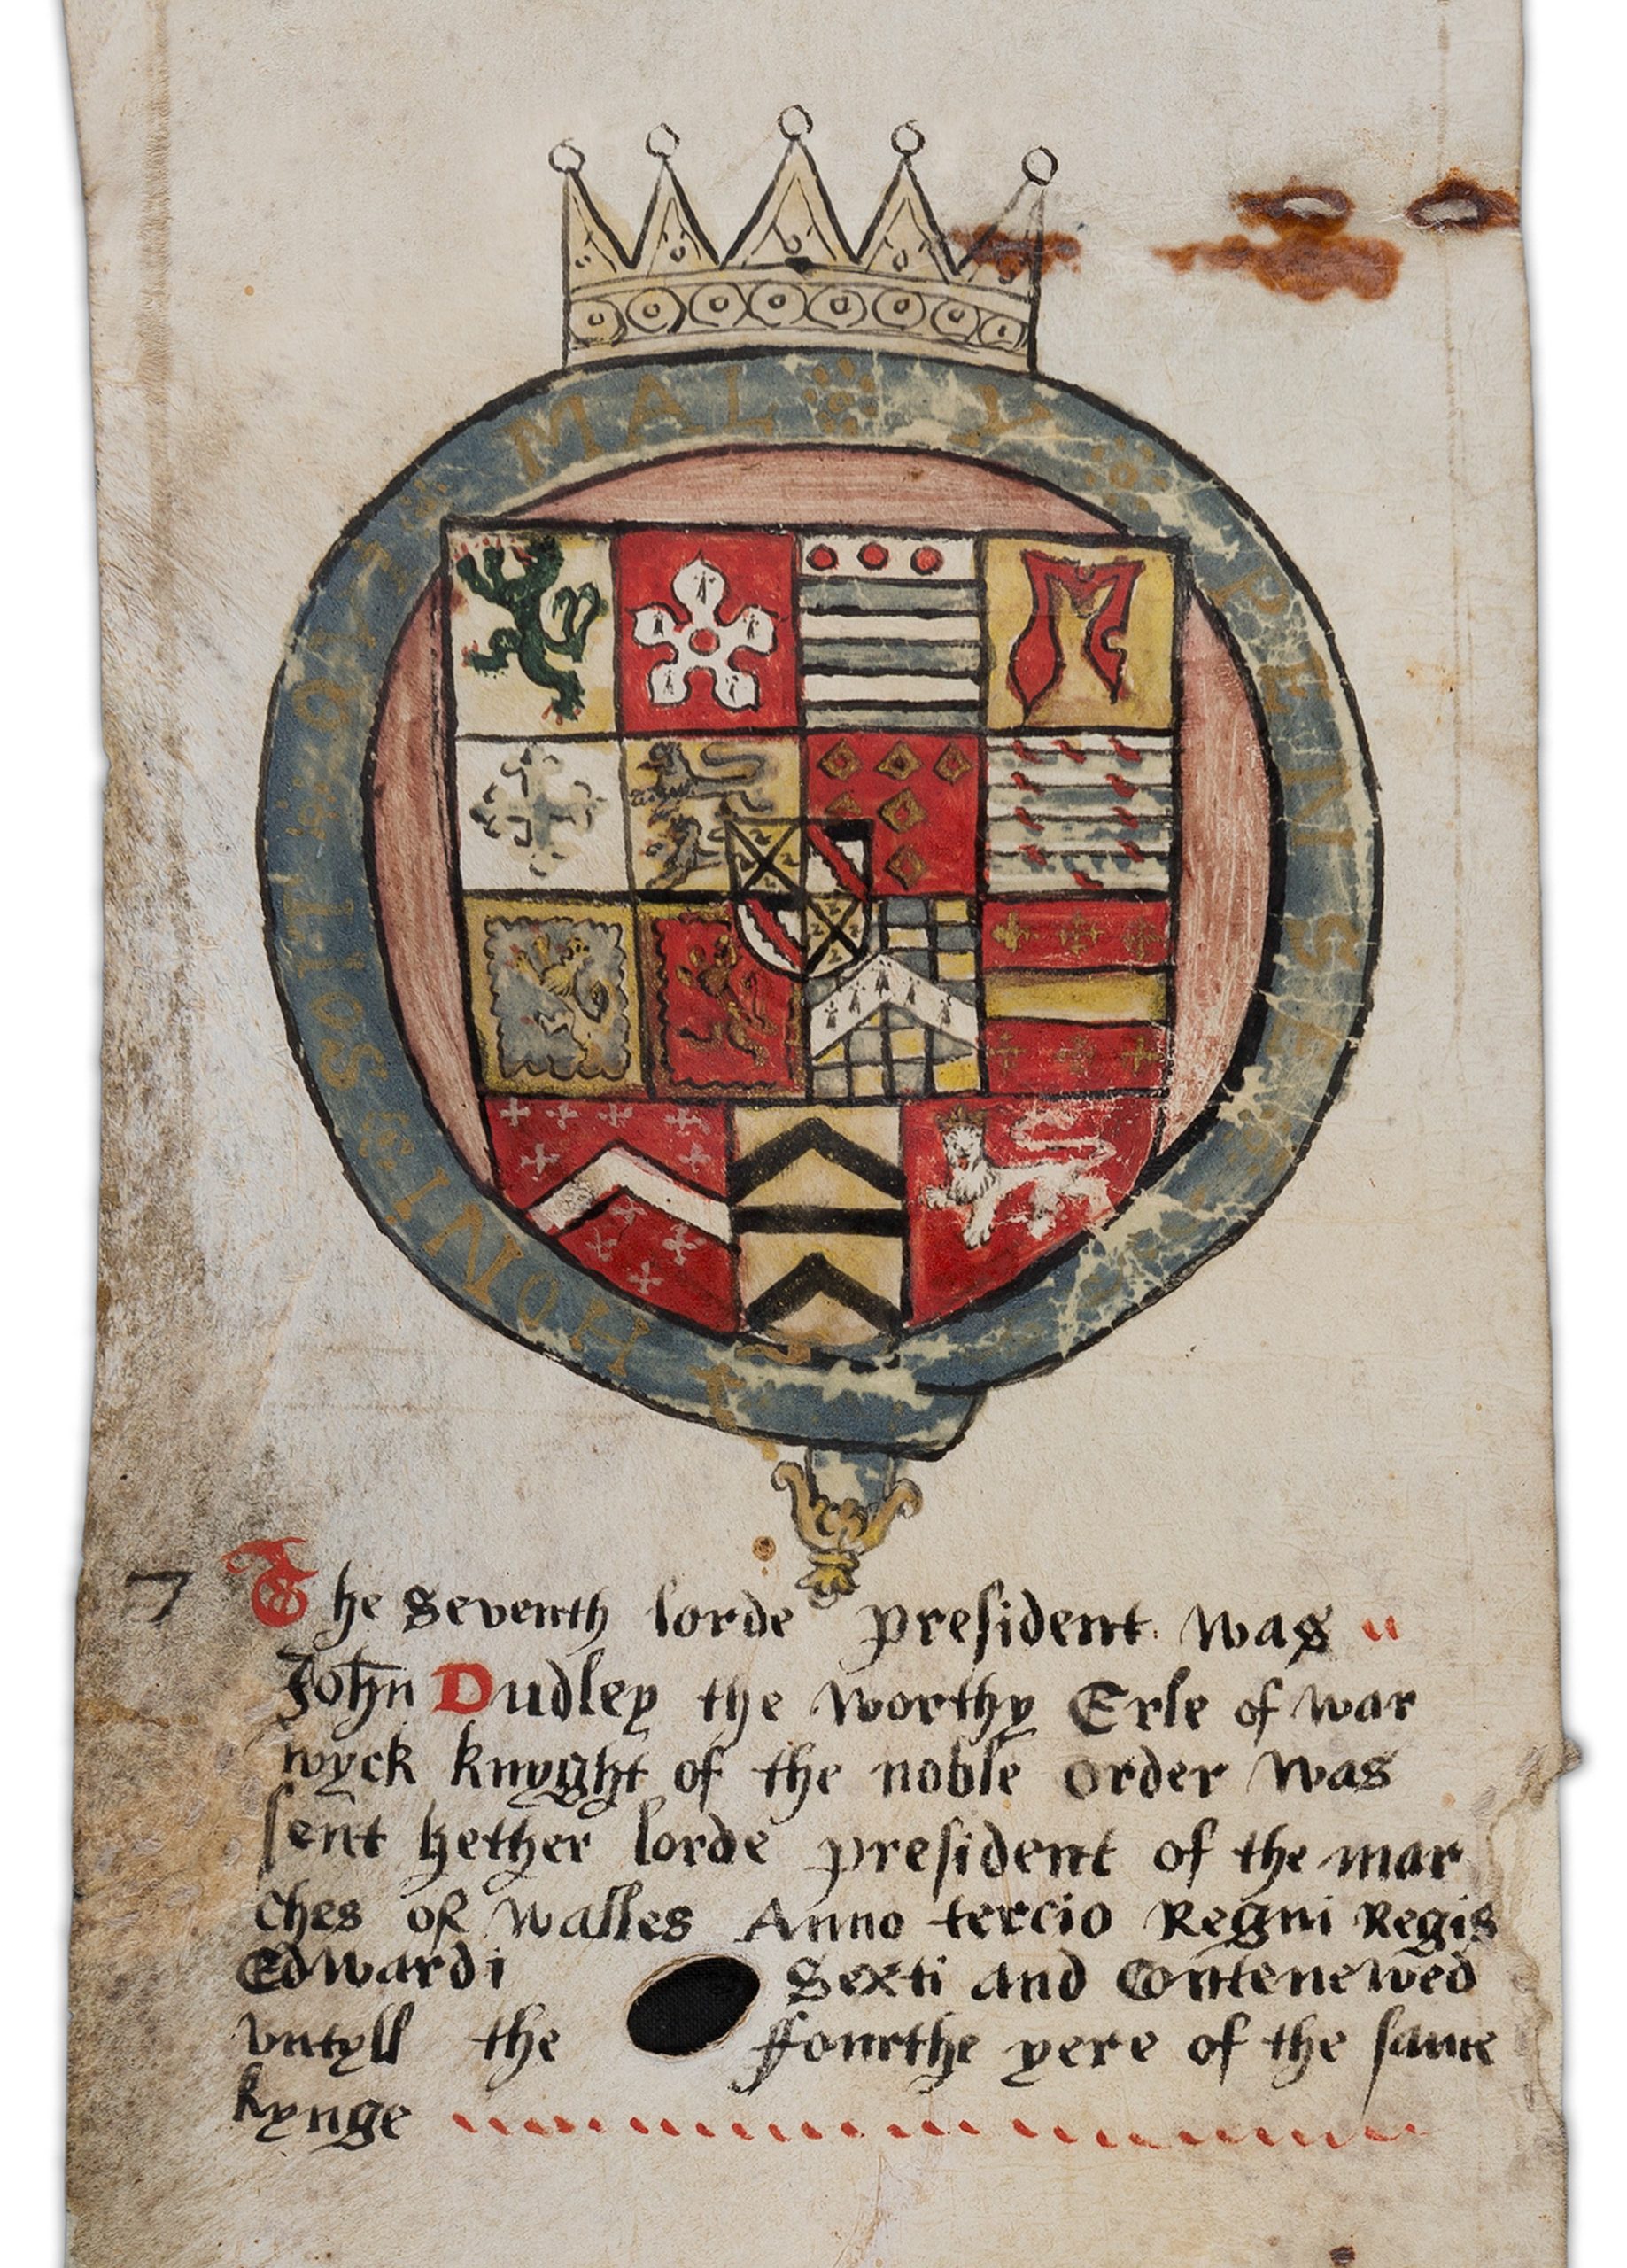 HONI SOIT QVI MAL Y PENSE
7 The Seventh lorde president was
John Dudley the worthy Erle of war
wyck knyght of the noble order was
sent hether lorde president of the mar
ches of walles Anno tercio Regni Regis
Edwardi Sexti and Contenewed
vntyll the ffourthe yere of the same
kynge